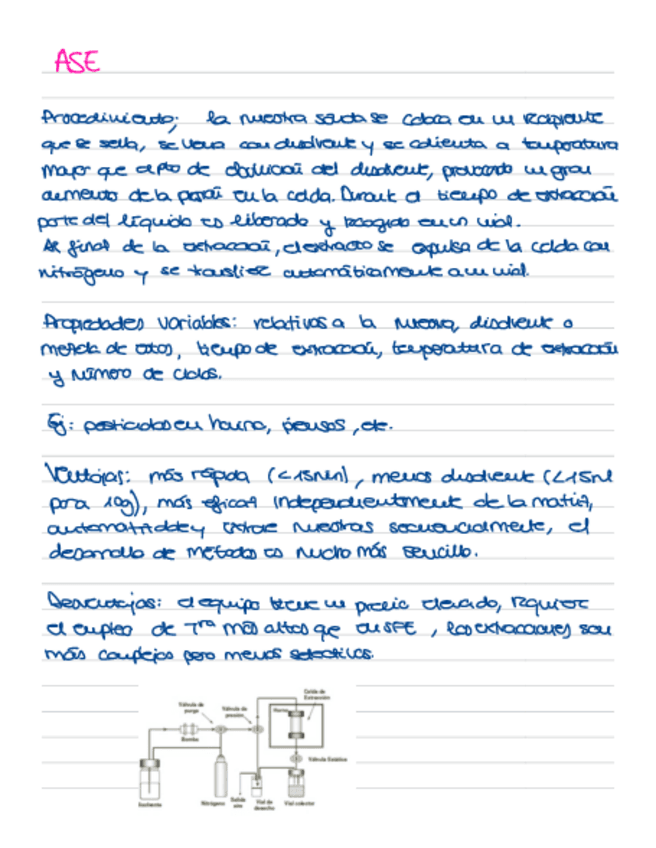 ASE
Procedimiento: la muestra sólida se coloca en un recipiente
que se sella, se llena con disolvente y se calienta a temperatura
mayor que el pto de ebullición del disolvente, provocando un gran
aumento de la presión en la celda. Durante el tiempo de extracción
parte del líquido es liberado y recogido en un vial.
Al final de la extracción, el extracto se expulsa de la celda con
nitrógeno y se transfiere automáticamente a un vial.
Propiedades variables: relativas a la muestra, disolvente o
mezcla de estos, tiempo de extracción, temperatura de extracción
y número de ciclos.
Ej: pesticidas en harina, piensos, etc.
Ventajas: más rápida (<15min), menos disolvente (<15ml
para 10g), más eficaz independientemente de la matriz,
automatizada y extrae muestras secuencialmente, el
desarrollo de métodos es mucho más sencillo.
Desventajas: el equipo tiene un precio elevado, requiere
el empleo de Tra más altas que en SFE, las extracciones son
más complejas pero menos selectivas.
Celda de
Extracción
Válvula de
purga
Válvula de
presión
Horno
Bomba
Válvula Estática
Solvente
Nitrógeno
Salida
aire
Vial de
desecho
Vial colector